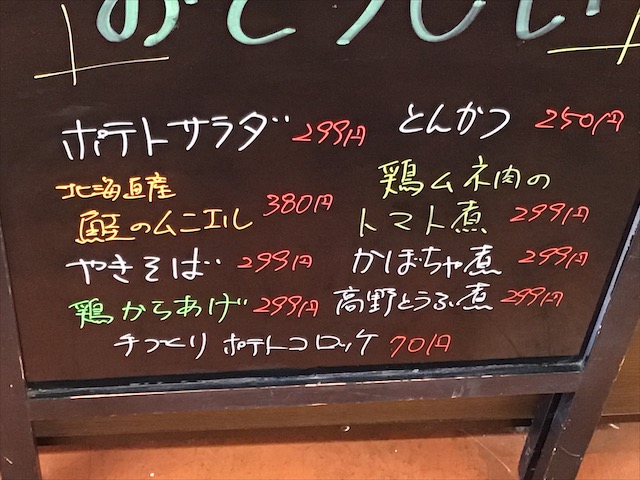 おそうざい
ポテトサラダ 299円
とんかつ 250円
北海道産
鮭のムニエル 380円
鶏ムネ肉の
トマト煮 299円
やきそば 299円
かぼちゃ煮 299円
鶏からあげ 299円
高野とうふ煮 299円
手づくり ポテトコロッケ 70円